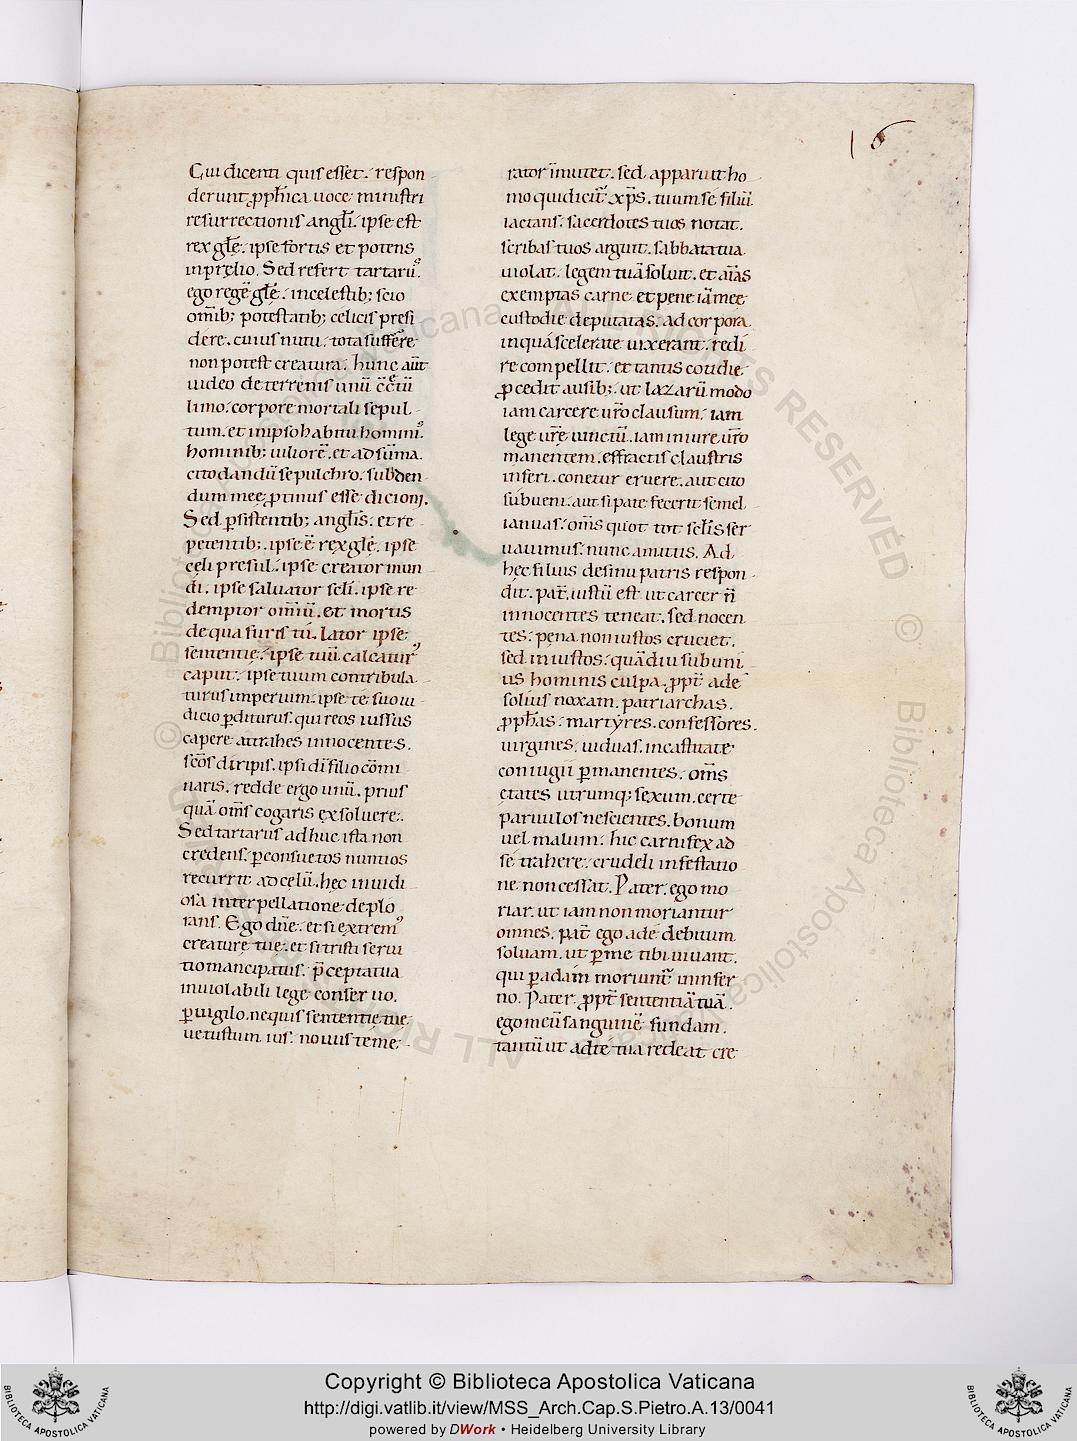 16
Cui dicenti quis esset. respon
derunt ꝓph̄ica uoce ministri
resurrectionis angłi. ipse est
rex głę. ipse fortis et potens
in pręlio. Sed refert tartarꝰ.
ego regē głę. in celestib; scio
om̄ib; potestatib; celicis presi
dere. cuius nutū. tota suffer̄re
non potest creatura. hunc aūt
uideo de terrenis unū c̄c̄tū
limo. corpore mortali sepul
tum. et in ipso habitu hominꝰ.
hominib; uiliorē. et ad sūma.
cito dandū sepulchro. subden
dum meę ꝓtinus esse dicioni.
Sed ꝑsistentib; angłis. et re
petentib;. ipse ē rex głę. ipse
cęli presul. ipse creator mun
di. ipse saluator sełi. ipse re
demptor om̄iū. et mortis
de qua furis tū. lator ipse
sententię. ipse tuū calcaturꝰ
caput. ipse tuum contribula
turus imperium. ipse te suo iu
dicio ꝑditurus. qui reos iussus
capere attrahes innocentes.
sc̄ōs diripis. ipsi dī filio cōmi
naris. redde ergo unū. prius
quā om̄s cogaris exsoluere.
Sed tartarus adhuc ista non
credens. ꝑ consuetos nuntios
recurrit ad cęlū. hęc inuidi
osa interpellatione deplo
rans. Ego dn̄e. et si extremꝰ
creature tue. et si tristi serui
tio mancipatus. p̄cepta tua
inuiolabili lege conseruo.
ꝑuigilo. nequis sententię tuę
uetustum ius. nouus teme
rator īmutet. sed apparuit ho
mo qui dicit᷑ xp̄s. tuum se filiū
iactans. sacerdotes tuos notat.
scribas tuos arguit. sabbata tua
uiolat. legem tuā soluit. et aīas
exemptas carne. et pene iā meę
custodie deputatas. ad corpora.
in quā scelerate uixerant. redi
re compellit. et tantis cotidie.
ꝓcedit ausib;. ut lazarū modo
iam carcere ūro clausum. iam
lege ūre uinctū. iam in iure ūro
manentem. effractis claustris
inferi. conetur eruere. aut cito
subueni. aut si patefecerit semel
ianuas. om̄s quot tot sełis ser
uauimus. nunc amittis. Ad
hęc filius de sinu patris respon
dit. pat᷑. iustū est ut carcer n̄
innocentes teneat. sed nocen
tes. pena non iustos cruciet.
sed iniustos. quādiu sub uni
us hominis culpa. ꝓpt᷑ adę
solius noxam. patriarchas.
ꝓph̄as. martyres. confessores.
uirgines. uiduas. in castitate
coniugii ꝑmanentes. om̄s
ętates utrumq; sexum. certe
paruulos nescientes. bonum
uel malum. hic carnifex ad
se trahere. crudeli infestatio
ne non cessat. Pater. ego mo
riar. ut iam non moriantur
omnes. pat᷑ ego adę debitum
soluam. ut ꝑ me tibi uiuant.
qui ꝑ adam moriunt᷑ in infer
no. Pater ꝓpt᷑ sententiā tuā.
ego meū sanguinē fundam.
tantū ut ad te tua redeat cre
© Biblioteca Apostolica Vaticana ALL RIGHTS RESERVED © Biblioteca Apostolica Vaticana ALL RIGHTS RESERVED
BIBLIOTECA APOSTOLICA VATICANA
Copyright © Biblioteca Apostolica Vaticana
http://digi.vatlib.it/view/MSS_Arch.Cap.S.Pietro.A.13/0041
powered by DWork • Heidelberg University Library
BIBLIOTECA APOSTOLICA VATICANA